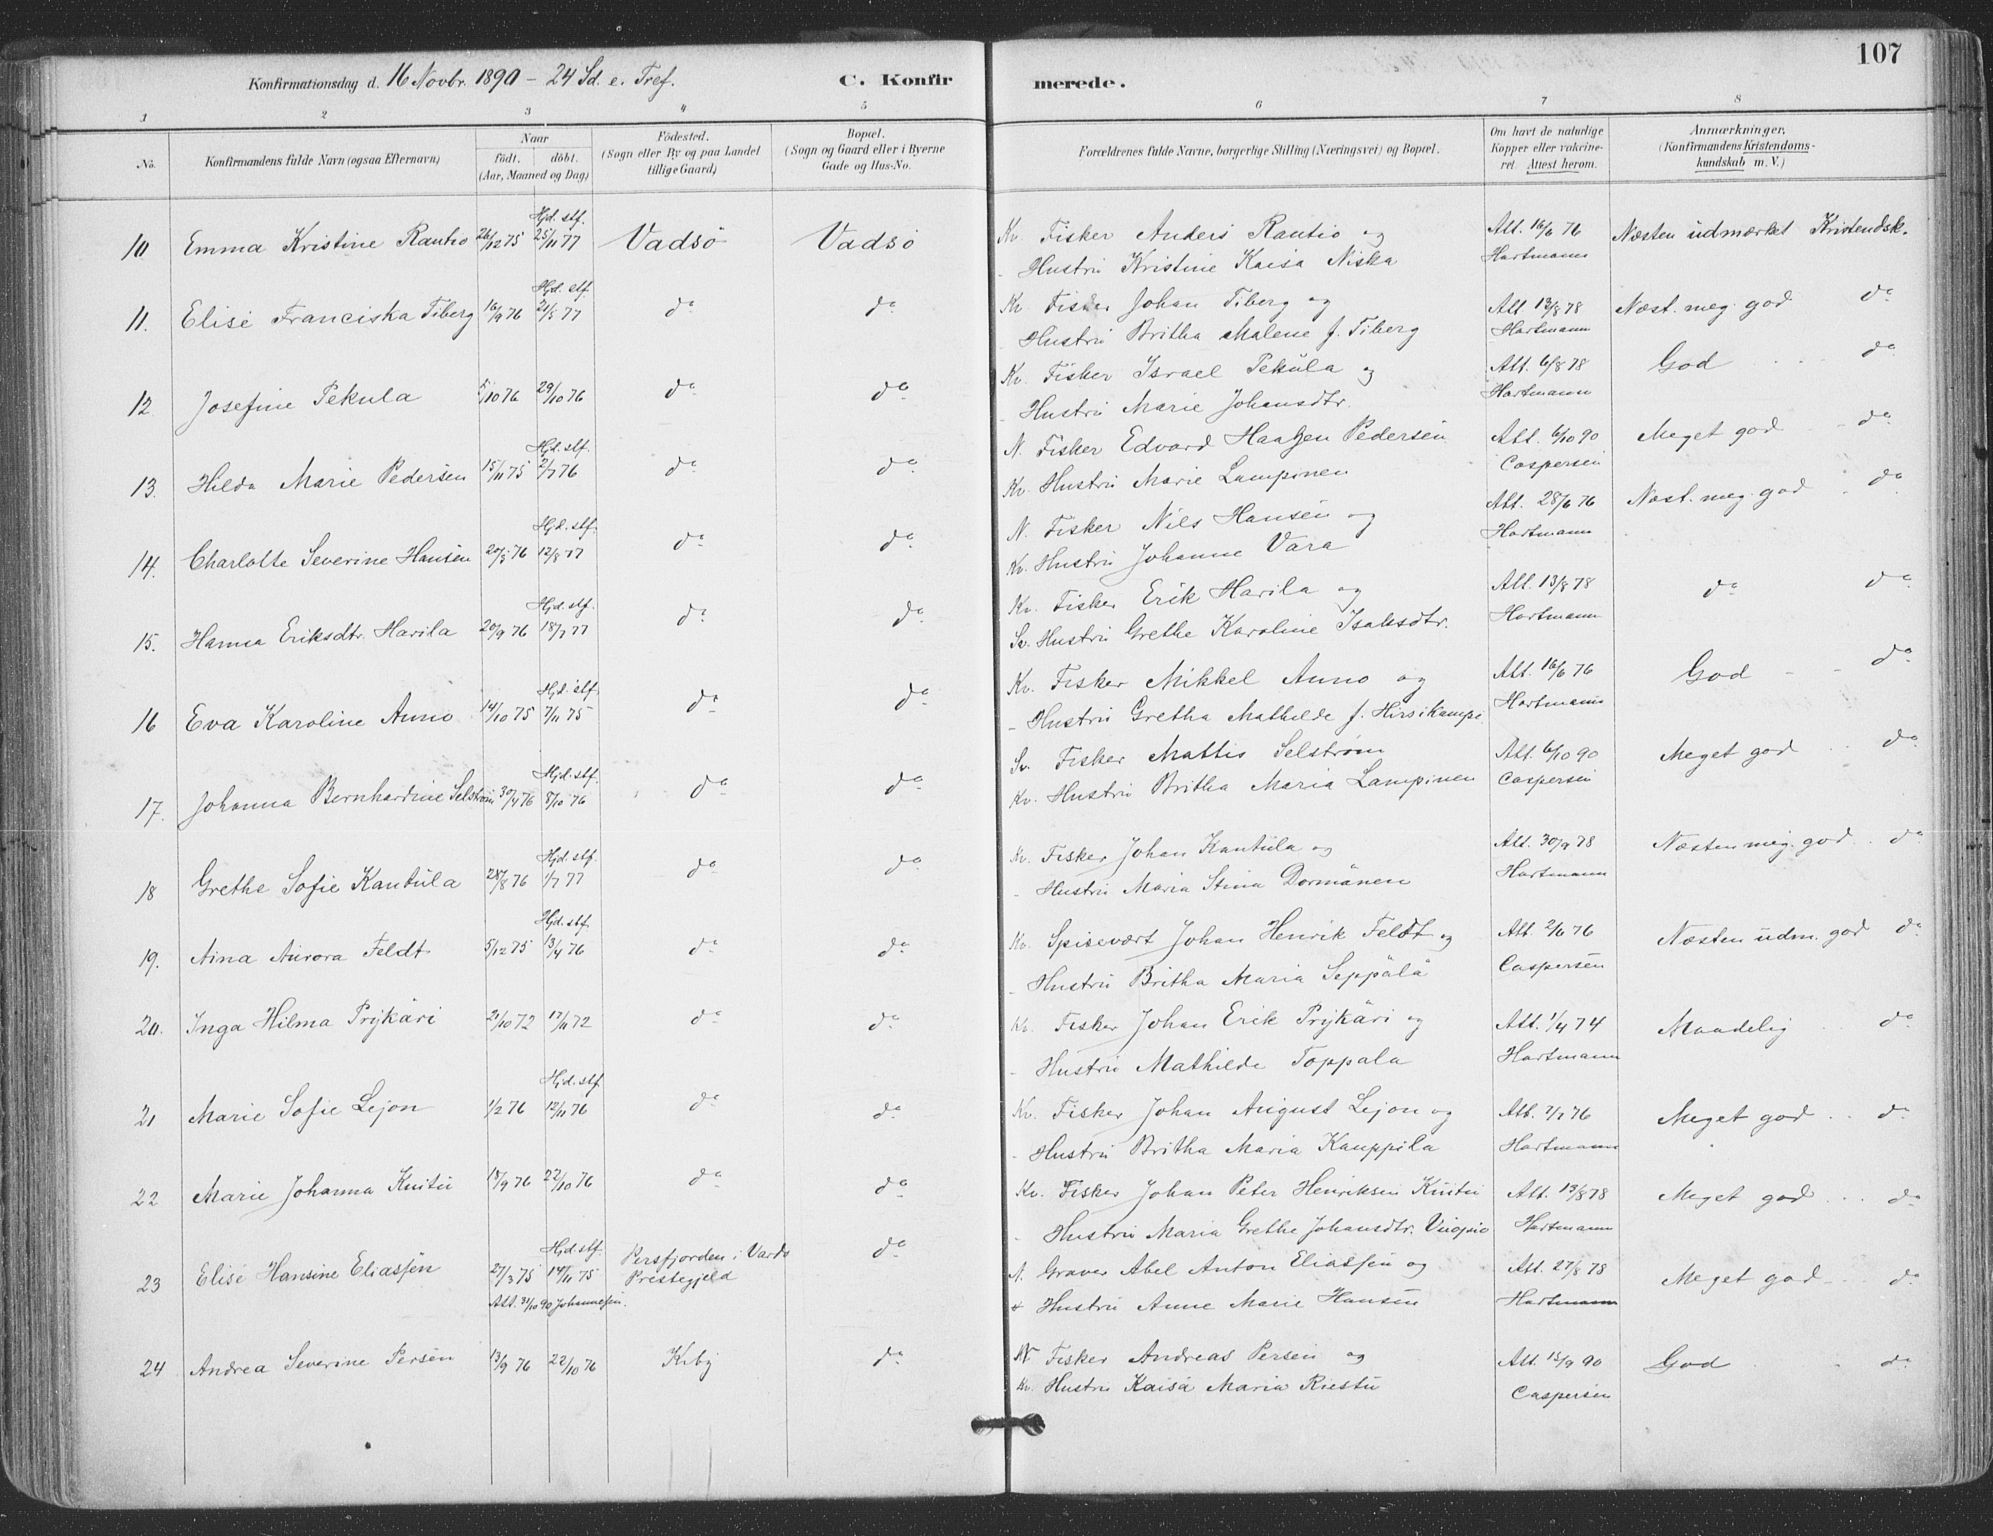 107
Konfirmationsdag d. 16 Novbr. 1890 - 24 Sd. e. Tref.
C. Konfirmerede.
1 2 3 4 5 6 7 8
No.
Konfirmandens fulde Navn (ogsaa Efternavn)
Naar
födt. döbt.
(Aar, Maaned og Dag)
Födested.
(Sogn eller By og paa Landet
tillige Gaard)
Bopæl.
(Sogn og Gaard eller i Byerne
Gade og Hus-No.
Forældrenes fulde Navne, borgerlige Stilling (Næringsvei) og Bopæl.
Om havt de naturlige
Kopper eller vakcine-
ret. Attest herom.
Anmærkninger,
(Konfirmandens Kristendoms-
kundskab m. V.)
10 Emma Kristine Rautio 26/12 75 Hjd. stf. 25/11 77 Vadsö Vadsö
Kv. Fisker Anders Rautio og
- Hustru Kristine Kaisa Niska
Att. 16/6 76
Hartmann
Næsten udmærket Kristendsk.
11. Elise Franciska Tiberg 16/9 76 Hjd. stf. 21/5 77 do do
Kv. Fisker Johan Tiberg og
- Hustru Britha Malene f. Tiberg
Att. 13/8 78
Hartmann
Næst. meg. god do
12 Josefine Pekula 5/10 76 29/10 76 do do
Kv. Fisker Israel Pekula og
- Hustru Marie Johansdtr.
Att. 6/8 78
Hartmann
God do
13. Hilda Marie Pedersen 15/11 75 Hjd. stf. 2/7 76 do do
N. Fisker Edvard Haagen Pedersen
Kv. Hustru Marie Lampinen
Att. 6/10 90
Caspersen
Meget god do
14. Charlotte Severine Hansen 20/3 76 Hjd. stf. 12/8 77 do do
N. Fisker Nils Hansen og
Kv. Hustru Johanne Vara
Att. 28/6 76
Hartmann
Næst. meg. god do
15. Hanna Eriksdtr. Harila 20/9 76 Hjd. stf. 18/7 77 do do
Kv. Fisker Erik Harila og
Sv. Hustru Grethe Karoline Isaksdtr.
Att. 13/8 78
Hartmann
do do
16 Eva Karoline Anno 14/10 75 Hjd. stf. 7/11 75 do do
Kv. Fisker Mikkel Anno og
- Hustru Gretha Mathilde f. Hirsikampe
Att. 16/6 76
Hartmann
God do
17. Johanna Bernhardine Selström 30/4 76 Hjd. stf. 8/10 76 do do
Sv. Fisker Mattis Selstrøm
Kv. Hustru Britha Maria Lampinen
Att. 6/10 90
Caspersen
Meget god do
18 Grethe Sofie Kantula 28/8 76 Hjd. stf. 1/7 77 do do
Kv. Fisker Johan Kantula og
- Hustru Maria Stina Dormänen
Att. 30/9 78
Hartmann
Næsten meg. god do
19. Aina Aurora Feldt 5/12 75 Hjd. stf. 13/4 76 do do
Kv. Spisevært Johan Henrik Feldt og
- Hustru Britha Maria Seppälä
Att. 2/6 76
Caspersen
Næsten udm. god do
20. Inga Hilma Prykäri 21/10 72 17/11 72 do do
Kv. Fisker Johan Erik Prykäri og
- Hustru Mathilde Toppala
Att. 1/4 74
Hartmann
Maadelig do
21 Marie Sofie Lejon 1/2 76 Hjd. stf. 12/11 76 do do
Kv. Fisker Johan August Lejon og
- Hustru Britha Maria Kauppila
Att. 7/7 76
Hartmann
Meget god do
22 Marie Johanna Knitu 18/9 76 22/10 76 do do
Kv. Fisker Johan Peter Henriksen Knitu
- Hustru Maria Grethe Johansdtr.
Att. 13/8 78
Hartmann
Meget god do
23 Elise Hansine Eliassen 27/3 75 Hjd. stf. 14/11 75 Persfjorden i Vardö Prestegjeld do
Att. 31/10 90 Johannesen.
N. Graver Abel Anton Eliassen og
Hustru Anne Marie Hansen
Att. 27/8 78
Hartmann
Meget god do
24 Andrea Severine Persen 13/9 76 22/10 76 Kiby do
N Fisker Andreas Persen og
Kv. Hustru Kaisa Maria Riestu
Att. 15/9 90
Caspersen
God do